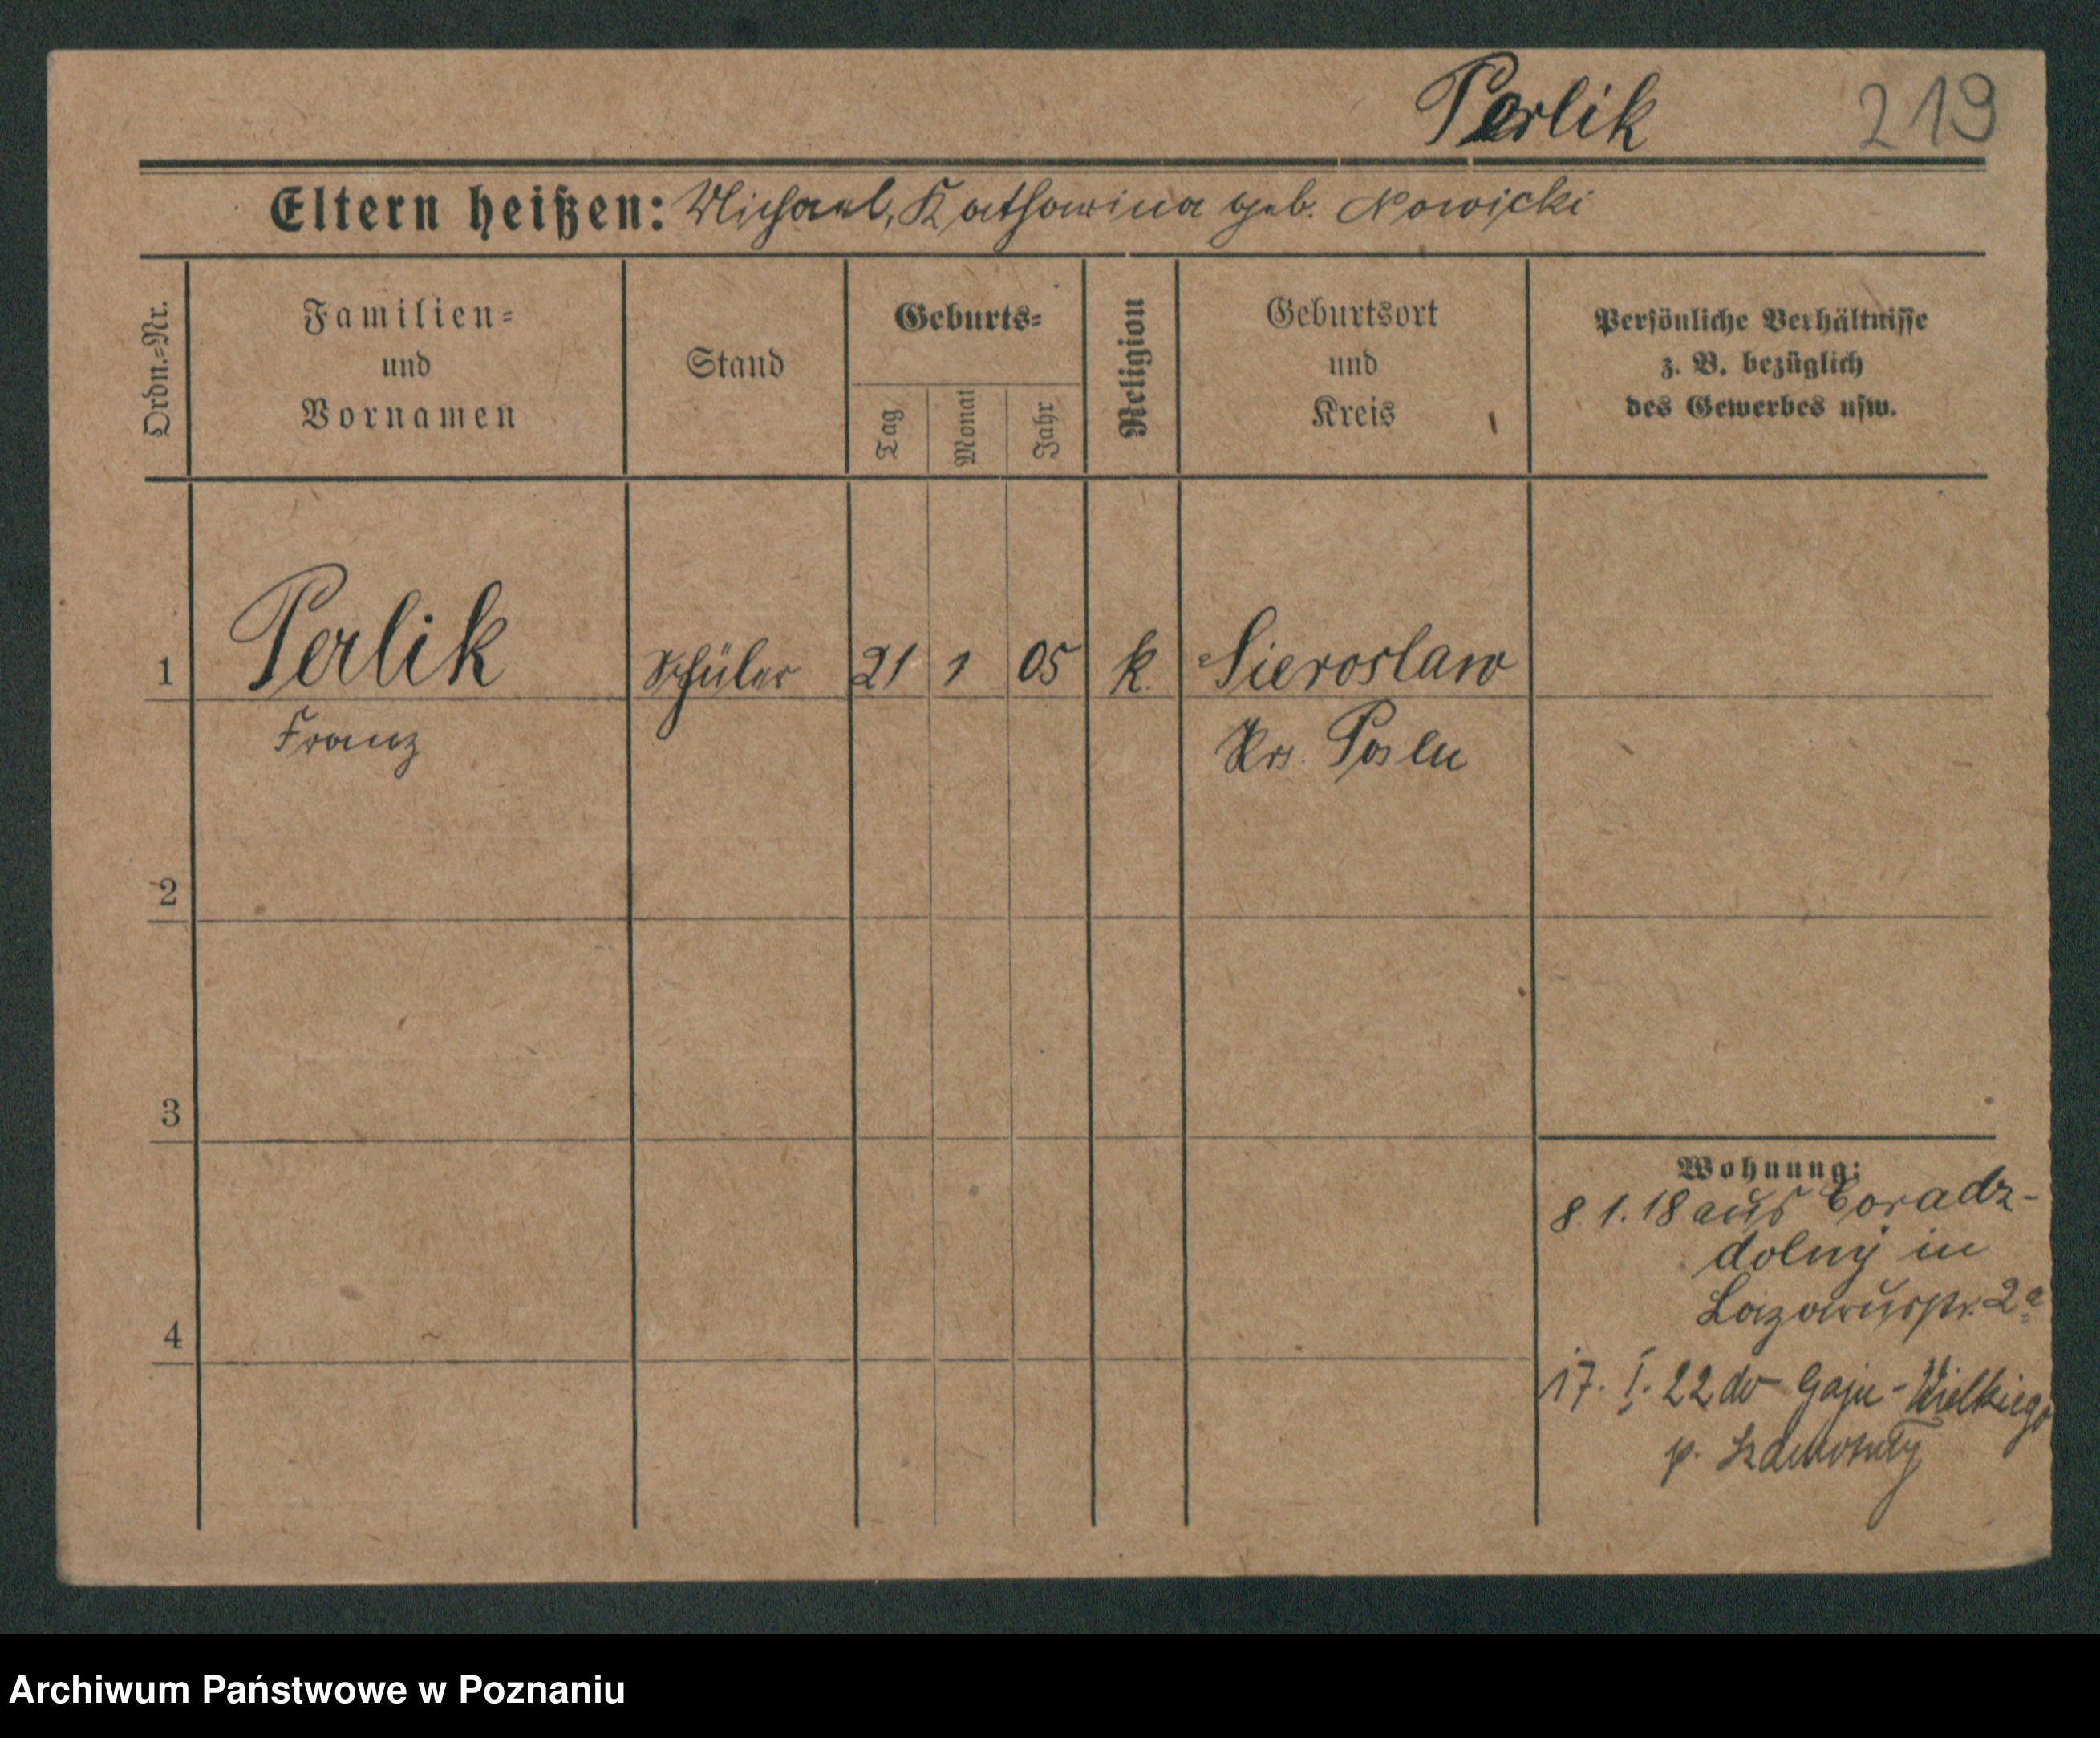 Perlik 219
Eltern heißen: Michael, Katharina geb. Nowicki
Ordn.=Nr.
Familien=
und
Vornamen
Stand
Geburts=
Tag
Monat
Jahr
Religion
Geburtsort
und
Kreis
Persönliche Verhältnisse
z. B. bezüglich
des Gewerbes usw.
1 Perlik Schüler 21 1 05 k. Sieroslaw
Franz Krs. Posen
2
3
4
Wohnung:
8. 1. 18 aus Coradz-
dolny in
Lazarusstr. 2a
17. I. 22 do Gaju-Wielkiego
p. Szamotuły
Archiwum Państwowe w Poznaniu